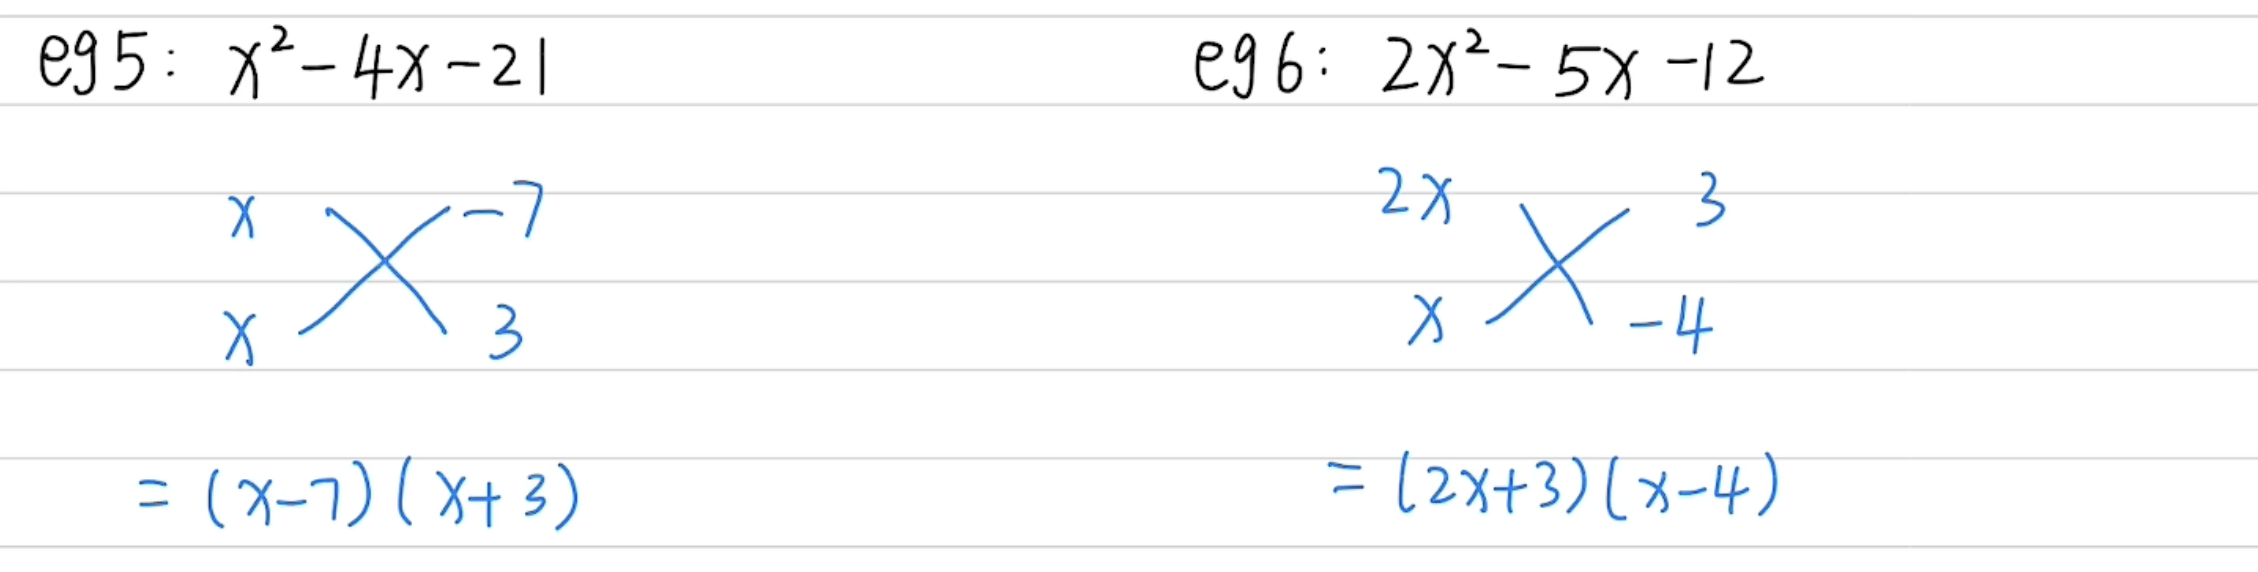 eg5: x²-4x-21
x -7
x 3
= (x-7)(x+3)
eg6: 2x²-5x-12
2x 3
x -4
= (2x+3)(x-4)